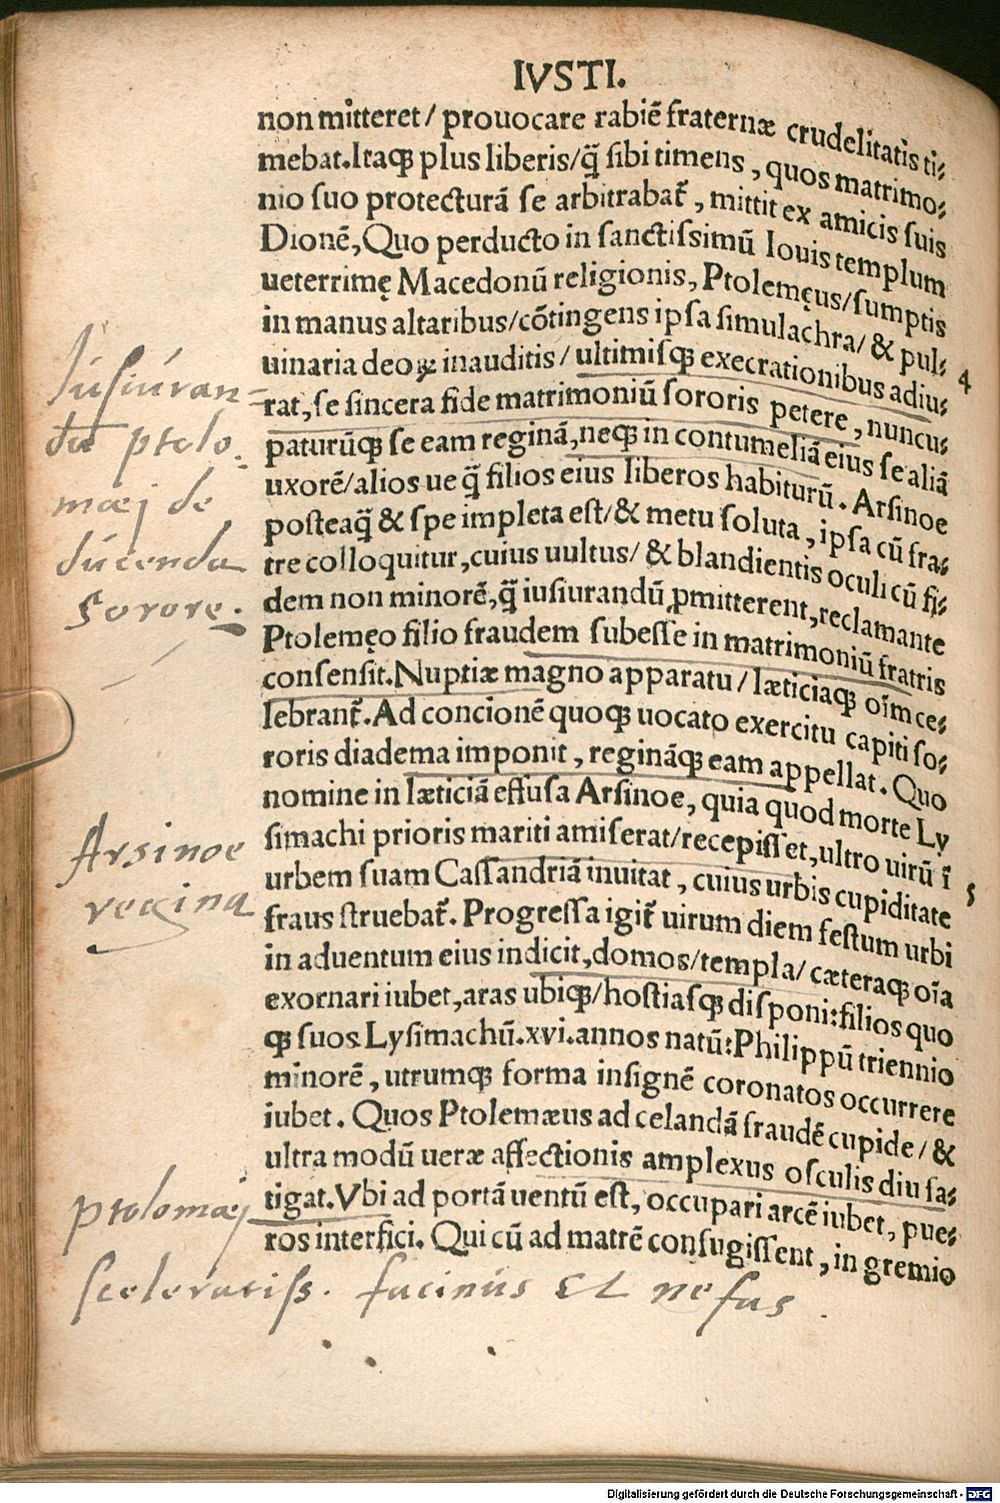 IVSTI.
non mitteret / prouocare rabiē fraternæ crudelitatis ti⸗
mebat. Itaq; plus liberis / q̃ sibi timens, quos matrimo⸗
nio suo protecturā se arbitrabat᷑, mittit ex amicis suis
Dionē, Quo perducto in sanctissimū Iouis templum
ueterrimę Macedonū religionis, Ptolemęus / sumptis
in manus altaribus / cōtingens ipsa simulachra / & pul⸗
uinaria deoꝝ inauditis / ultimisq; execrationibus adiu⸗
4
rat, se sincera fide matrimoniū sororis petere, nuncu⸗
paturūq; se eam reginā, neq; in contumeliā eius se aliā
uxorē / alios ue q̃ filios eius liberos habiturū. Arsinoe
posteaq̃ & spe impleta est / & metu soluta, ipsa cū fra⸗
tre colloquitur, cuius uultus / & blandientis oculi cū fi⸗
dem non minorē, q̃ iusiurandū ꝓmitterent, reclamante
Ptolemęo filio fraudem subesse in matrimoniū fratris
consensit. Nuptiæ magno apparatu / læticiaq; oīm ce⸗
lebrant᷑. Ad concionē quoq; uocato exercitu capiti so⸗
roris diadema imponit, regināq; eam appellat. Quo
nomine in læticiā effusa Arsinoe, quia quod morte Ly
simachi prioris mariti amiserat / recepisset, ultro uirū ī
urbem suam Cassandriā inuitat, cuius urbis cupiditate
5
fraus struebat᷑. Progressa igit᷑ uirum diem festum urbi
in aduentum eius indicit, domos / templa / cæteraq; oīa
exornari iubet, aras ubiq; / hostiasq; disponi: filios quo
q; suos Lysimachū. xvi. annos natū: Philippū triennio
minorē, utrumq; forma insignē coronatos occurrere
iubet. Quos Ptolemæus ad celandā fraudē cupide / &
ultra modū ueræ affectionis amplexus osculis diu fa⸗
tigat. Vbi ad portā uentū est, occupari arcē iubet, pue⸗
ros interfici. Qui cū ad matrē confugissent, in gremio
Iusiuran-
dū ptolo-
mæj de
ducenda
sorore.
Arsinoe
regina
ptolomæj
sceleratiss. facinus et nefas.
Digitalisierung gefördert durch die Deutsche Forschungsgemeinschaft - DFG